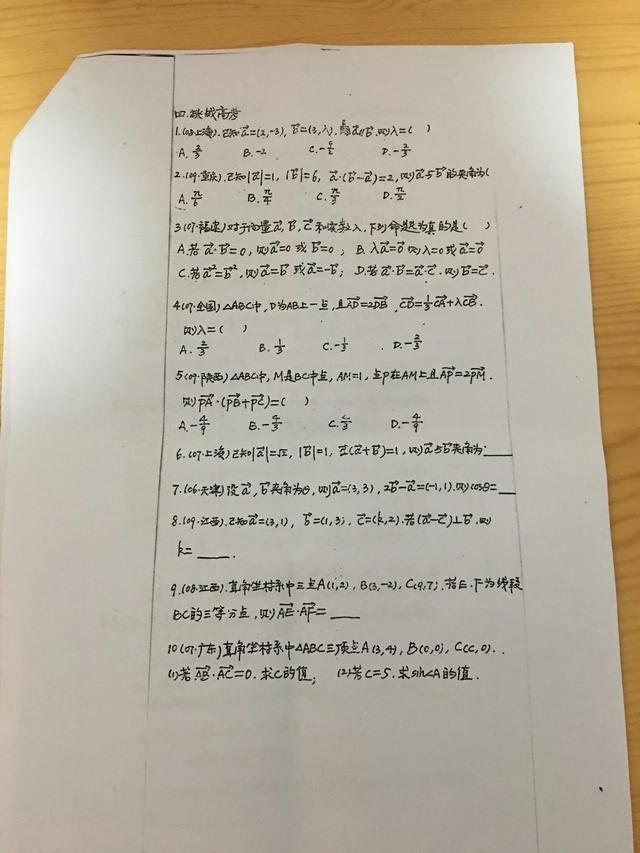 四.挑战高考
1.(08.上海).已知a⃗=(2,-3), b⃗=(3,λ), a⃗∥b⃗.则λ=( )
A. 2/3 B. -2 C. -9/2 D. -2/3
2.(09.重庆).已知|a⃗|=1, |b⃗|=6, a⃗·(b⃗-a⃗)=2,则a⃗与b⃗的夹角为(
A. π/6 B. π/4 C. π/3 D. π/2
3(07.福建)对于向量a⃗,b⃗,c⃗和实数λ,下列命题为真的是( )
A.若a⃗·b⃗=0,则a⃗=0或b⃗=0; B. λa⃗=0⃗则λ=0或a⃗=0⃗
C.若a⃗²=b⃗²,则a⃗=b⃗或a⃗=-b⃗; D.若a⃗·b⃗=a⃗·c⃗.则b⃗=c⃗.
4(07.全国)△ABC中,D为AB上一点,且AD⃗=2DB⃗,CD⃗=1/3CA⃗+λCB⃗.
则λ=( )
A. 2/3 B. 1/3 C. -1/3 D. -2/3
5(09.陕西)△ABC中,M是BC中点,AM=1,点P在AM上且AP⃗=2PM⃗.
则PA⃗·(PB⃗+PC⃗)=( )
A. -4/9 B. -4/3 C. 4/3 D. -4/9
6.(07.上海)已知|a⃗|=√2, |b⃗|=1, a⃗(a⃗+b⃗)=1,则a⃗与b⃗夹角为____
7.(06.天津)设a⃗,b⃗夹角为θ,则a⃗=(3,3), 2b⃗-a⃗=(-1,1).则cosθ=__
8.(09.江西).已知a⃗=(3,1), b⃗=(1,3), c⃗=(k,2).若(a⃗-c⃗)⊥b⃗.则
k=____.
9.(08.江西).直角坐标系中三点A(1,2), B(3,-2), C(9,7).若E.F为线段
BC的三等分点,则AE⃗·AF⃗=____
10(07.广东)直角坐标系中△ABC三顶点A(3,4), B(0,0), C(C,0).
(1)若AB⃗·AC⃗=0.求C的值; (2)若C=5.求sin∠A的值.